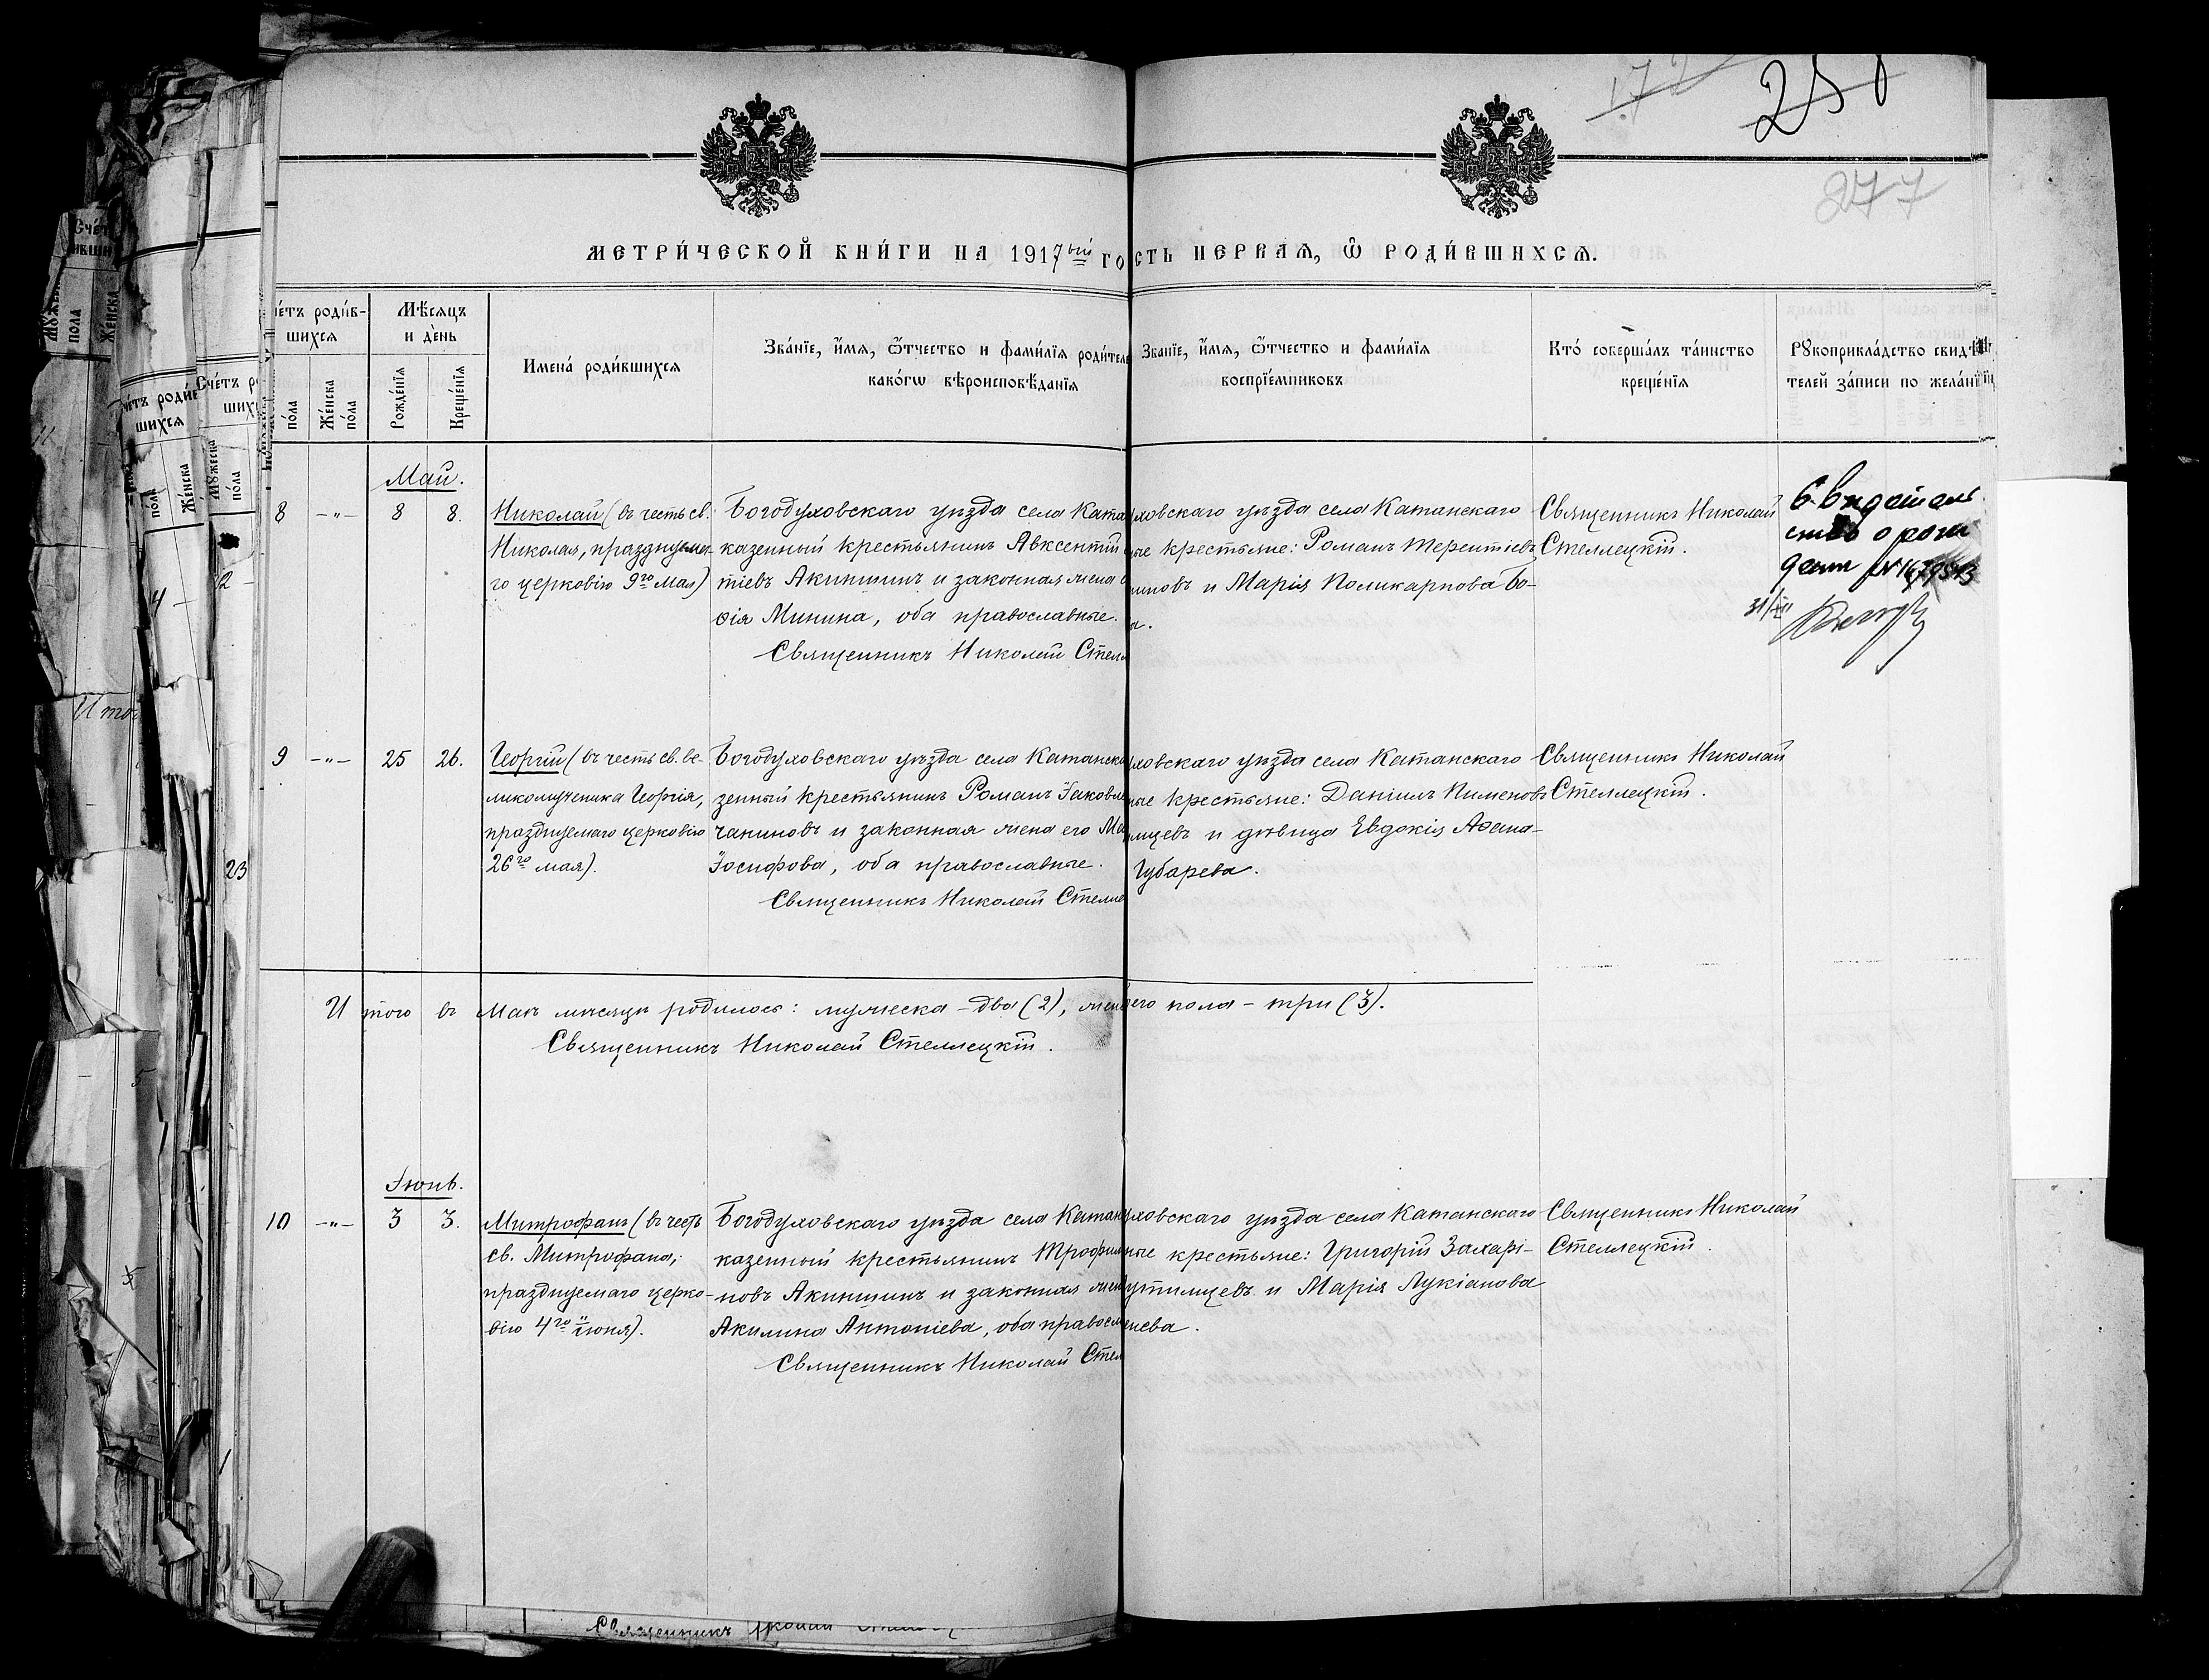 250
277
МЕТРИ́ЧЕСКОЙ КНИ́ГИ НА 1917ый ГО
СТЬ ПЕРВАЯ, Ѽ РОДИ́ВШИХСѦ.
Мѣ́сяцъ
и де́нь
Рожде́нїѧ
Креще́нїѧ
шихсѧ
по́ла
Же́нска
по́ла
Имена̀ роди́вшихсѧ
Зва́нїе, и́мѧ, ѻ́тчество и фами́лїѧ родителе
како́гѡ вѣроисповѣ́данїѧ
Зва́нїе, и́мѧ, ѻ́тчество и фами́лїѧ
воспрїе́мниковъ
Кто́ соверша́лъ та́инство
креще́нїѧ
Рꙋкоприкла́дство свидѣ
телей за́писи по жела́нї
Май.
8 -"- 8 8.
Николай (въ честь св.
Николая, празднуема-
го церковію 9го Мая)
Богодуховскаго уѣзда села Ката
казенный крестьянинъ Авксентій
тіевъ Акиншинъ и законная жена
ѳія Минина, оба православные.
Священникъ Николай Стелл
уховскаго уѣзда села Катанскаго
ые крестьяне: Романъ Терентіевъ
иновъ и Марія Поликарпова Бо-
а.
Священникъ Николай
Стеллецкій.
Свидетель
ство о рож
дении №
31/XII
9 -"- 25 26.
Георгій (въ честь св. ве-
ликомученика Георгія,
празднуемаго церковію
26го мая).
Богодуховскаго уѣзда села Катанска
зенный крестьянинъ Романъ Іаковле
чаниновъ и законная жена его Ма
Іосифова, оба православные.
Священникъ Николай Стелле
уховскаго уѣзда села Катанскаго
ные крестьяне: Даніилъ Пименовъ
лицевъ и дѣвица Евдокія Аѳана-
Губарева.
Священникъ Николай
Стеллецкій.
Итого въ Маѣ мѣсяцѣ родилось: мужеска - два (2), жен
его пола - три (3).
Священникъ Николай Стеллецкій.
Іюнь.
10 -"- 3 3.
Митрофанъ (въ честь
св. Митрофана,
празднуемаго церко-
вію 4го іюня).
Богодуховскаго уѣзда села Катан
казенный крестьянинъ Трофим
новъ Акиншинъ и законная жен
Акилина Антоніева, оба правосл
Священникъ Николай Стел
уховскаго уѣзда села Катанскаго
ные крестьяне: Григорій Захарі-
утилицевъ и Марія Лукіанова
иева.
Священникъ Николай
Стеллецкій.